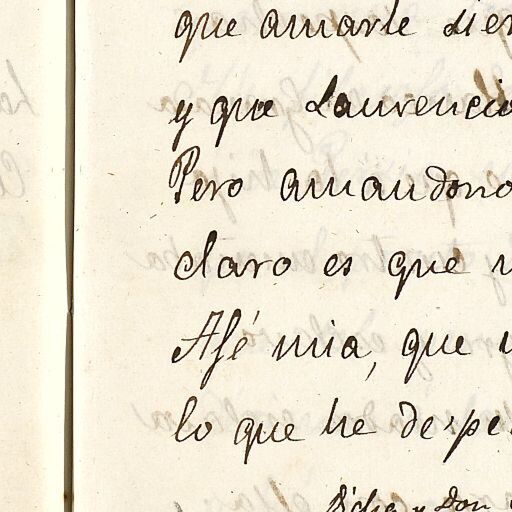 que amarle sier
y que Laurencio
Pero amandono
claro es que
A fé mia, que
lo que he de pe
Dicha y Don